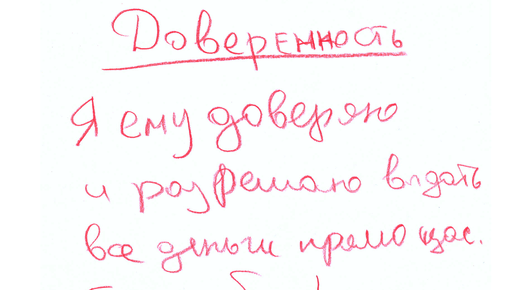 Доверенность
Я ему доверяю
и разрешаю выдать
все деньги прямо щас.